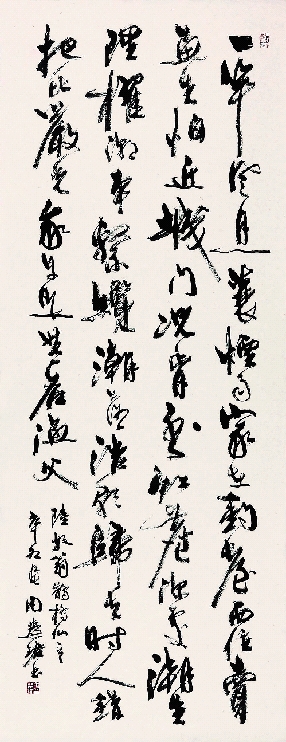 一竿風月一蓑煙雨家在釣臺西住賣
魚生怕近城門況肯到紅塵深處潮生
理櫂潮平繫纜潮落浩歌歸去時人錯
把比嚴光我自是無名漁父
陸放翁鵲橋仙
周慧珺書